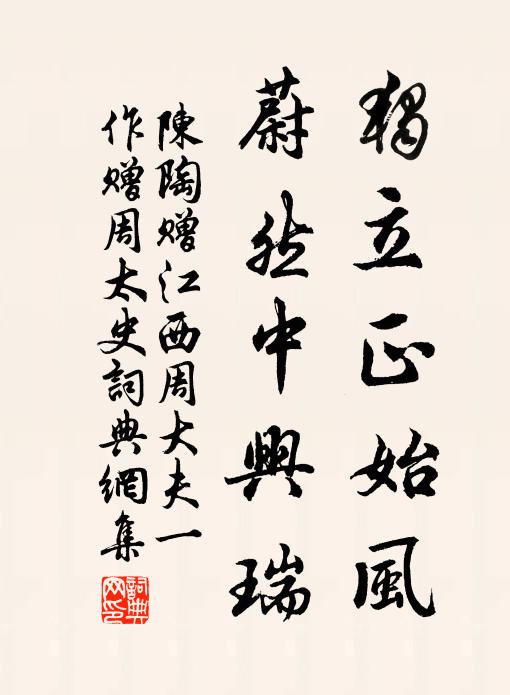 獨立正始風
蔚然中興瑞
陳陶贈江西周大夫一
作贈周太史詞典網集
詞典网印